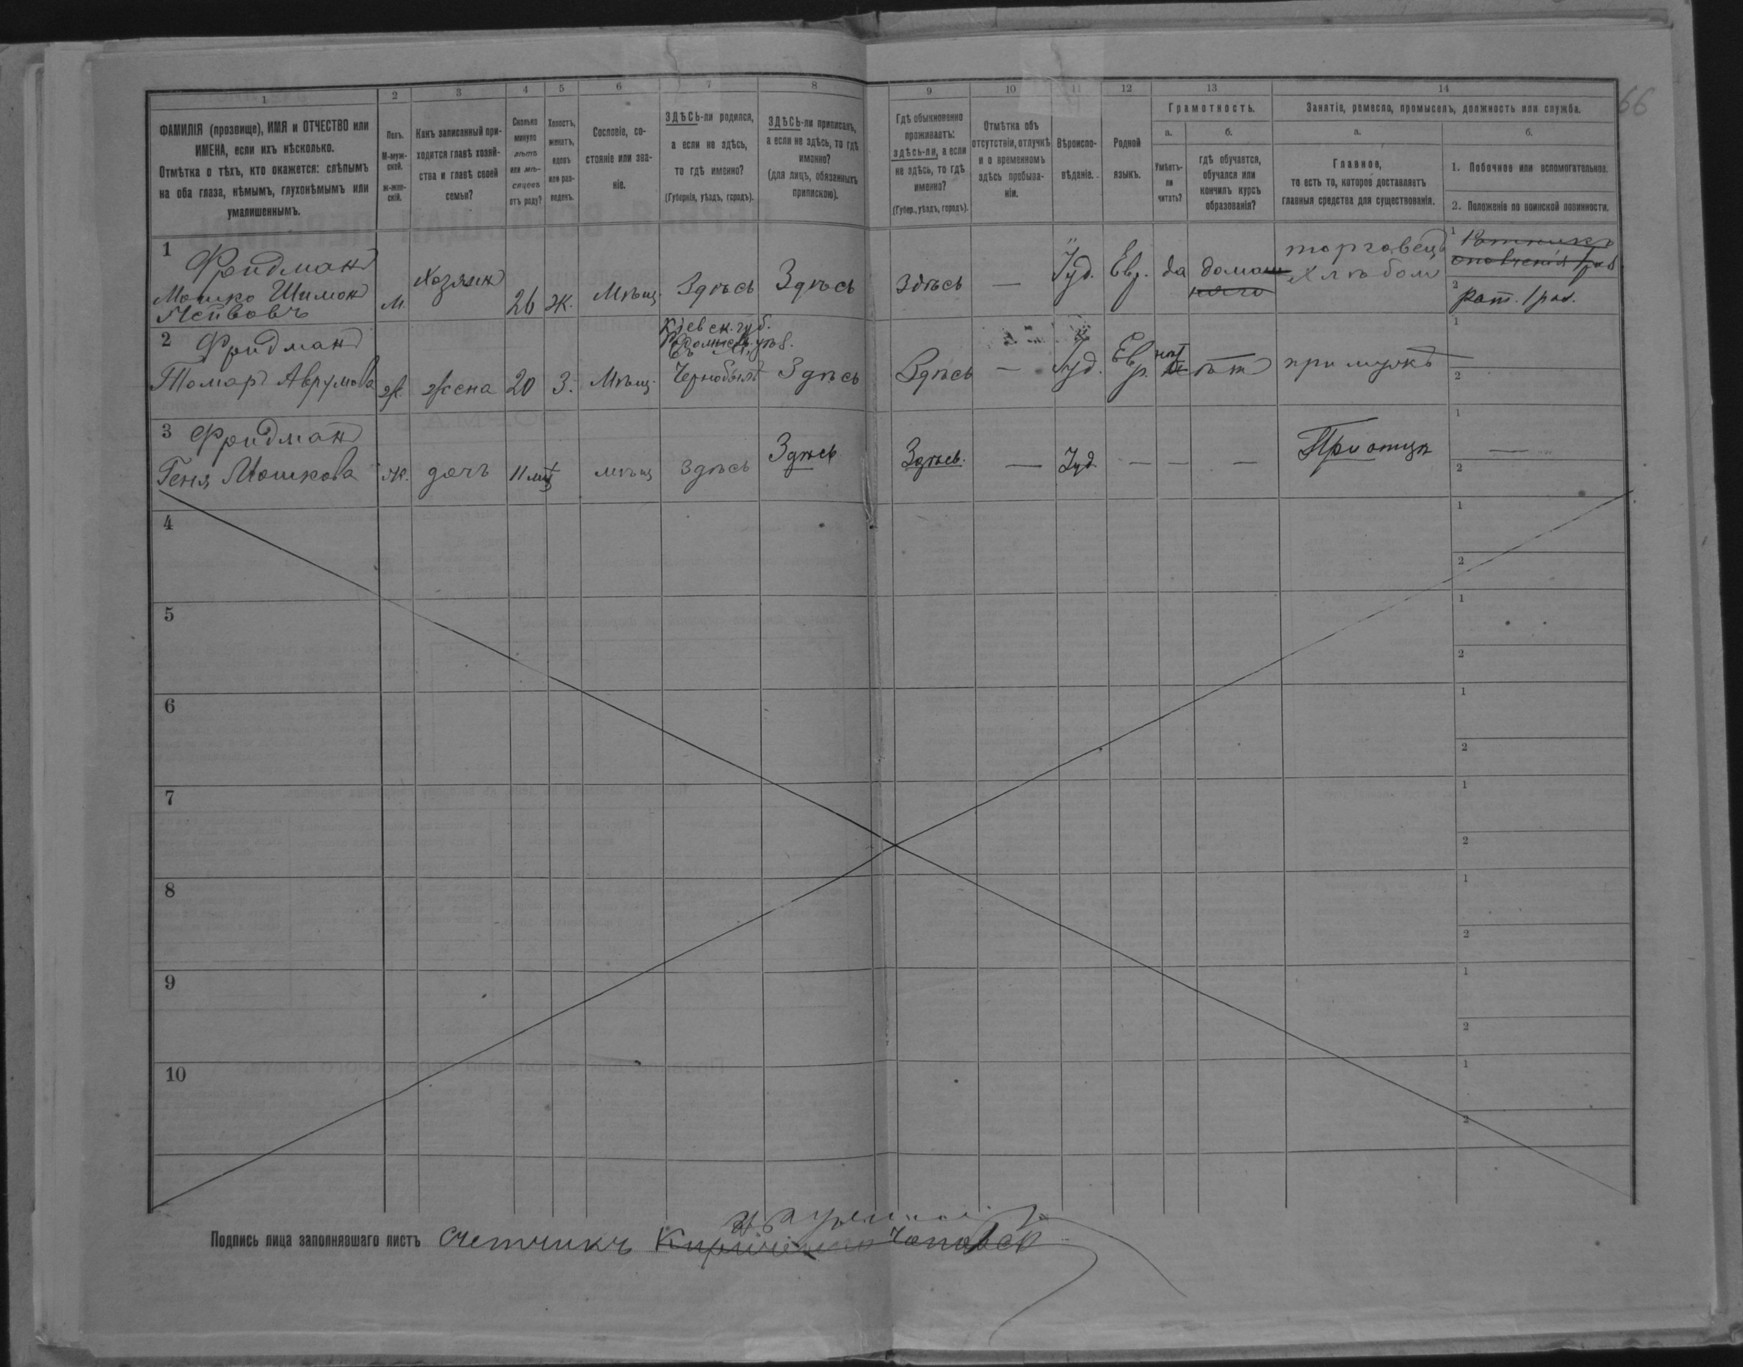 66
1
2
3
4
5
6
7
8
9
10
11
12
13
14
ФАМИЛІЯ (прозвище), ИМЯ и ОТЧЕСТВО или
ИМЕНА, если ихъ нѣсколько.
Отмѣтка о тѣхъ, кто окажется: слѣпымъ
на оба глаза, нѣмымъ, глухонѣмымъ или
умалишеннымъ.
Полъ.
М-муж-
ской.
ж-жен-
скій.
Какъ записанный при-
ходится главѣ хозяй-
ства и главѣ своей
семьи?
Сколько
минуло
лѣтъ
или мѣ-
сяцевъ
отъ роду?
Холостъ,
женатъ,
вдовъ
или раз-
веденъ.
Сословіе, со-
стояніе или зва-
ніе.
ЗДѢСЬ-ли родился,
а если не здѣсь,
то гдѣ именно?
(Губернія, уѣздъ, городъ).
ЗДѢСЬ-ли приписанъ,
а если не здѣсь, то гдѣ
именно?
(для лицъ, обязанныхъ
припискою).
Гдѣ обыкновенно
проживаетъ:
здѣсь-ли, а если
не здѣсь, то гдѣ
именно?
(Губер., уѣздъ, городъ).
Отмѣтка объ
отсутствіи, отлучкѣ
и о временномъ
здѣсь пребыва-
ніи.
Вѣроиспо-
вѣданіе.
Родной
языкъ.
Грамотность.
а.
Умѣетъ-
ли
читать?
б.
гдѣ обучается,
обучался или
кончилъ курсъ
образованія?
Занятія, ремесло, промыселъ, должность или служба.
а.
Главное,
то есть то, которое доставляетъ
главныя средства для существованія.
б.
1. Побочное или вспомогательное.
2. Положеніе по воинской повинности.
1
Фридман
Мошко Шимон
Лейбовъ
м
Хозяин
26
ж.
Мѣщ.
Здѣсь
Здѣсь
Здѣсь
—
Іуд.
Евр.
да
домаш
няго
торговец
хлѣбом
1 Ратникъ
ополченія 1 раз.
2
рат. 1 раз.
2
Фридман
Томар Аврумова
ж.
жена
20
З.
Мѣщ.
Кіевск. губ.
Чернобыль
Здѣсь
Здѣсь
—
Іуд.
Евр.
нѣт
при мужѣ
1
—
2
3
Фридман
Геня Мошкова
ж.
дочь
11 мѣ
мѣщ
Здѣсь
Здѣсь
Здѣсь.
—
Іуд
—
—
—
При отцѣ
1
—
2
4
1
2
5
1
2
6
1
2
7
1
2
8
1
2
9
1
2
10
1
2
Подпись лица заполнявшаго листъ Счетчикъ